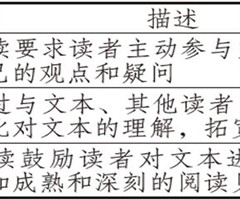 描述
读要求读者主动参与
己的观点和疑问
过与文本、其他读者
化对文本的理解，拓宽
读鼓励读者对文本进
加成熟和深刻的阅读见